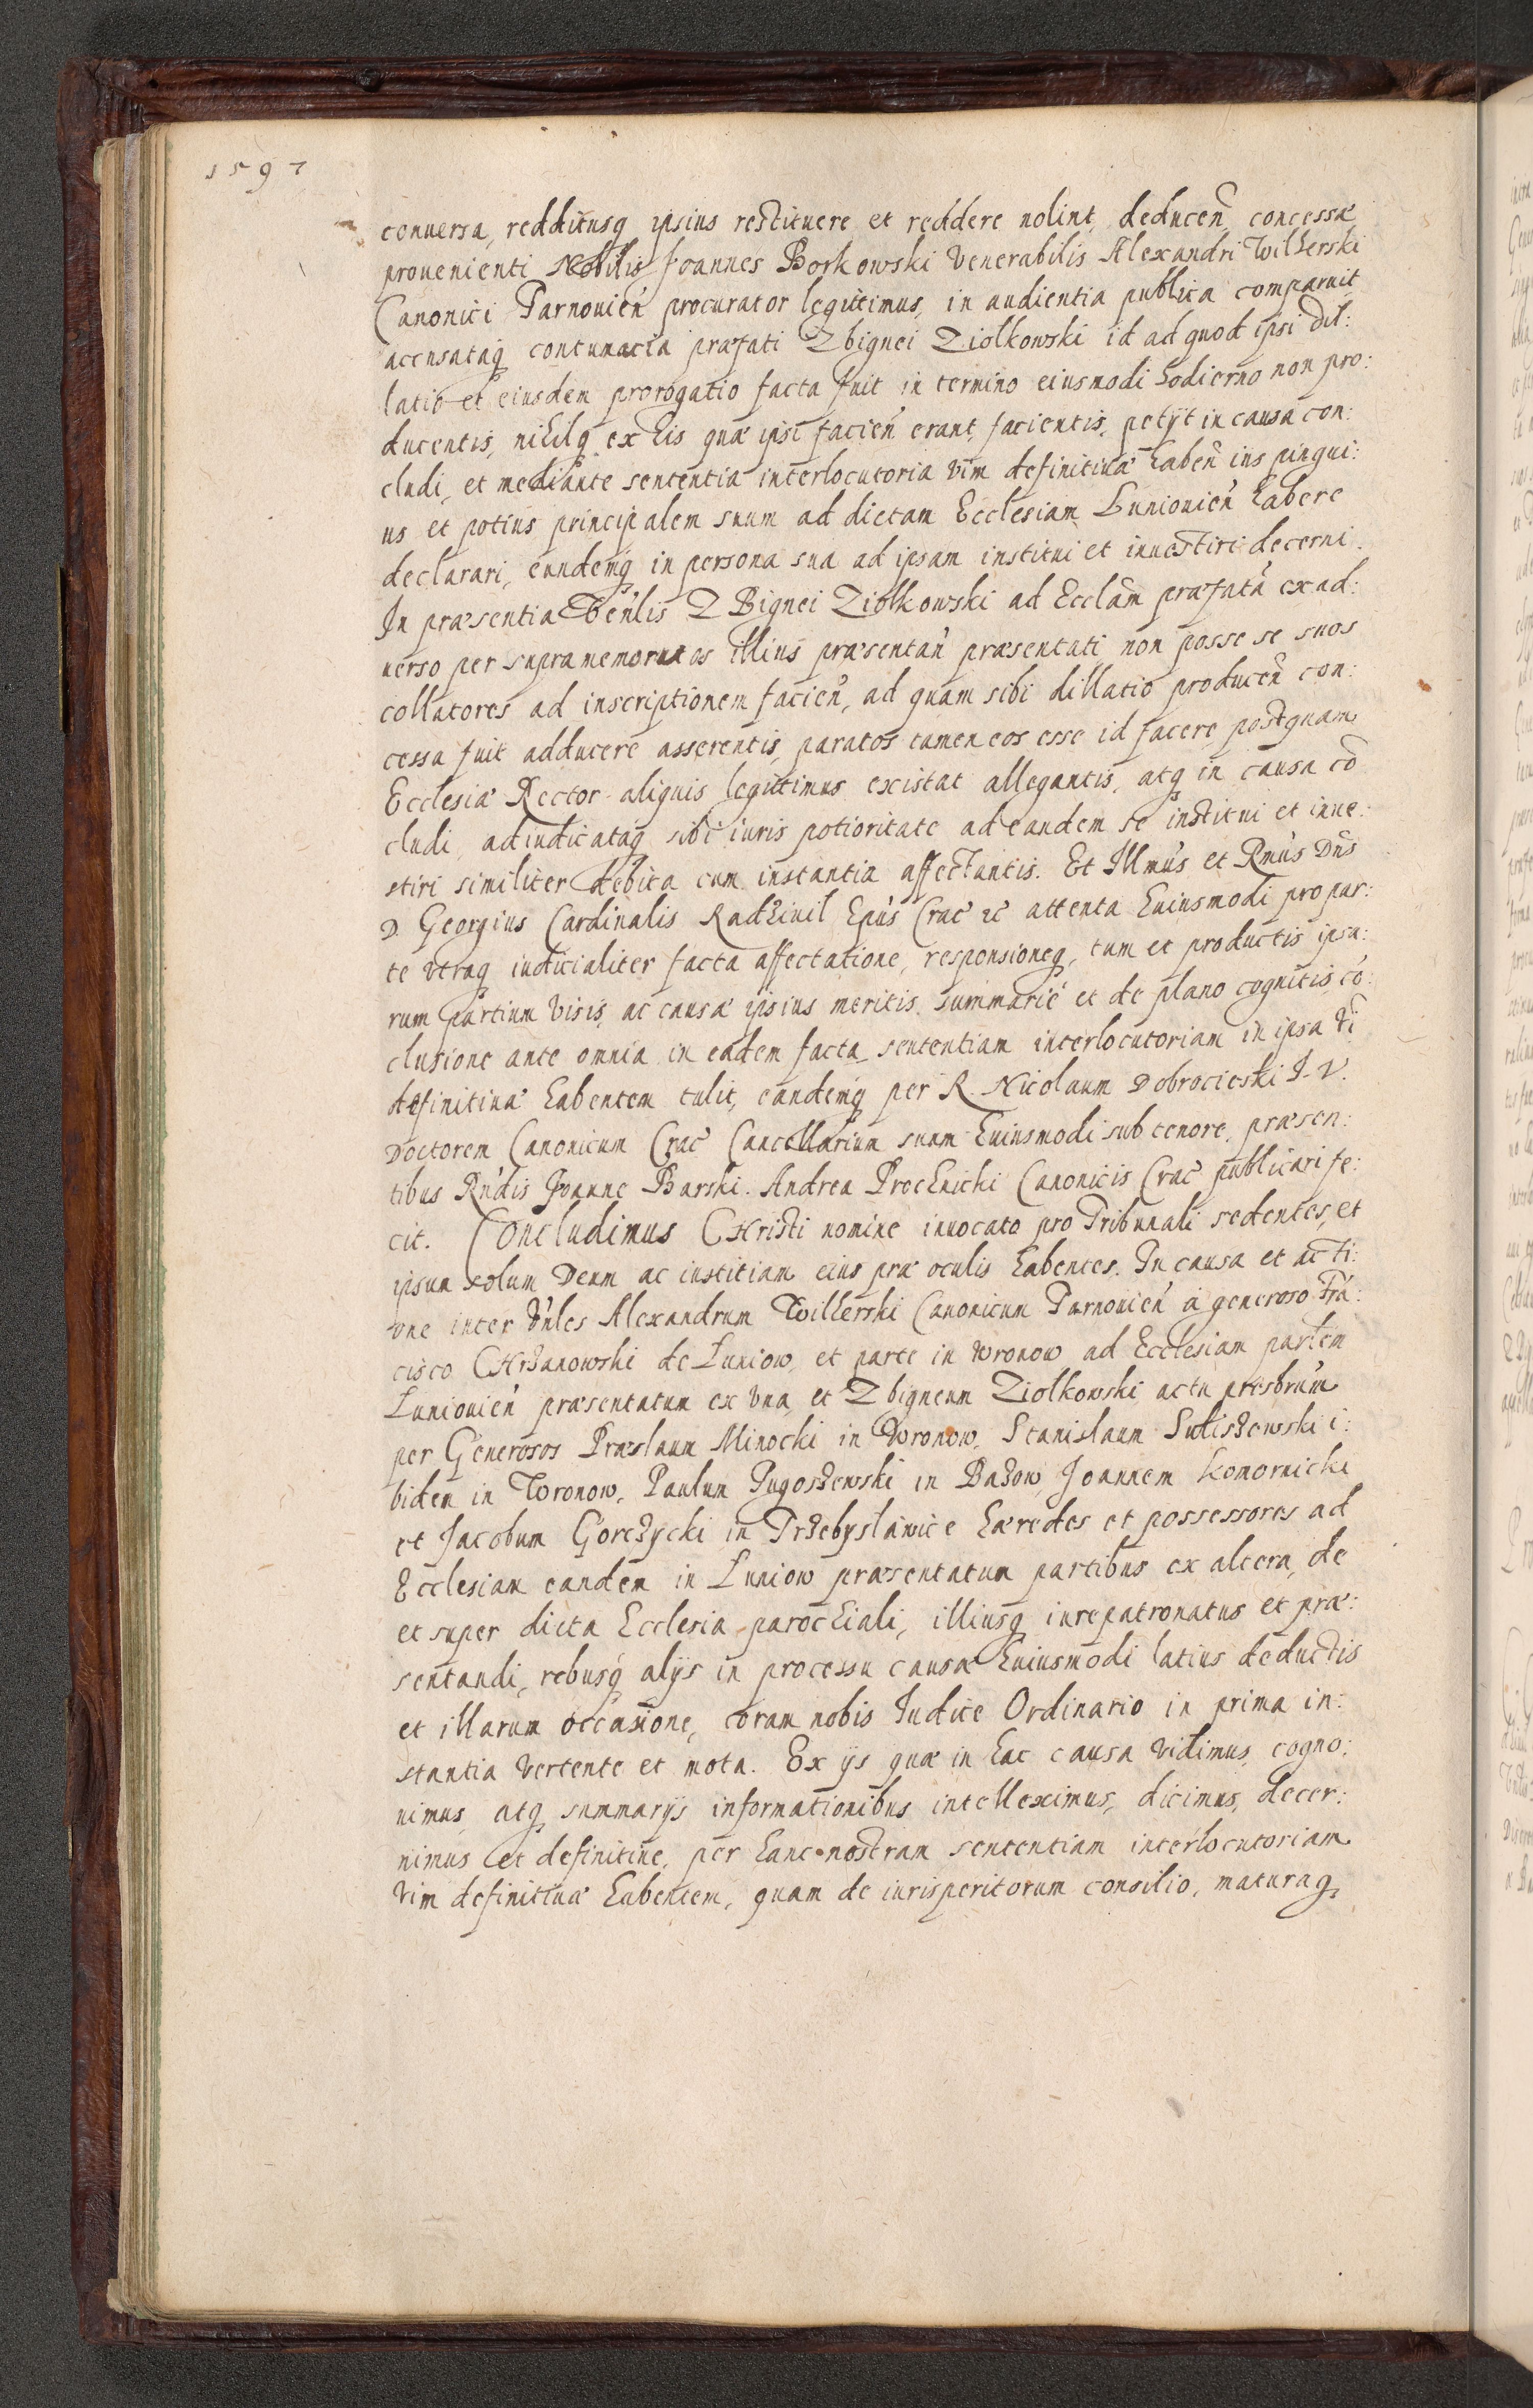 1597
conuersa, reddituusq₃ ipsius restituere et reddere nolint, deducen̄, concessæ
prouenienti Nobilis Joannes Borkowski Venerabilis Alexandri Wilherski
Canonici Tarnouien̄ procurator legittimus, in audientia publica comparuit
accusataq₃ contumacia præfati Zbignei Ziolkowski id ad quod ipsi dil:
latio et eiusdem prorogatio facta fuit in termino eiusmodi hodierno non pro:
ducentis, nihilq₃ ex his quæ ipsi facien̄ erant, facientis, petÿt in causa con:
cludi, et mediante sententia interlocutoria vim definitiuæ haben̄ ius pingui:
us et potius principalem suum ad dictam Ecclesiam Luniouien̄ habere
declarari, eundemq₃ in persona sua ad ipsam institui et inuestiri decerni.
In præsentia Ven̄lis Zbignei Ziolkowski ad Eccl̄am præfatā ex ad:
uerso per supramemoratos illius præsentan̄ præsentati non posse se suos
collatores ad inscriptionem facien̄, ad quam sibi dillatio producen̄ con:
cessa fuit adducere asserentis, paratos tamen eos esse id facere, postquam
Ecclesiæ Rector aliquis legittimus existat allegantis, atq₃ in causa cō
cludi, adiudicataq₃ sibi iuris potioritate ad eandem se institui et inue:
stiri similiter debita cum instantia affectantis. Et Illmūs et Rmūs Dn̄s
D. Georgius Cardinalis Radziuil Ep̄us Crac̄ ⁊c̄ attenta huiusmodi pro par:
te vtraq₃ iudicialiter facta affectatione, responsioneq₃, tum et productis ipsa:
rum partium visis, ac causæ ipsius meritis summarie et de plano cognitis, cō:
clusione ante omnia in eadem facta sententiam interlocutoriam in ipsa vī
definitiuæ habentem tulit, eandemq₃ per R. Nicolaum Dobrocieski I. V.
Doctorem Canonicum Crac̄ Cancellarium suum huiusmodi sub tenore, præsen:
tibus Rn̄dis Joanne Barski. Andrea Prochnicki Canonicis Crac̄ publicari fe:
cit. Concludimus CHristi nomine inuocato pro Tribunali sedentes, et
ipsum solum Deum ac iustitiam eius præ oculis habentes. In causa et acti:
one inter Vn̄les Alexandrum Wilherski Canonicum Tarnouien̄ a generoso Frā:
cisco CHrzanowski de Luniow, et parte in Wronow ad Ecclesiam partem
Luniouien̄ præsentatum ex vna, et Zbigneum Ziolkowski actu presbrūm
per Generosos Præslaum Minocki in Wronow, Stanislaum Suliszewski i:
bidem in Wronow, Paulum Pugoszewski in Bazow, Joannem Komornicki
et Jacobum Gorczycki in Przebyslawice hæredes et possessores ad
Ecclesiam eandem in Luniow præsentatum partibus ex altera, de
et super dicta Ecclesia parochiali, illiusq₃ iurepatronatus et præ:
sentandi, rebusq₃ alÿs in processu causæ huiusmodi latius deductis
et illarum occasione, coram nobis Iudice Ordinario in prima in:
stantia vertente et mota. Ex ÿs quæ in hac causa vidimus, cogno:
uimus, atq₃ summarÿs informationibus intelleximus, dicimus, decer:
nimus et definitiue, per hanc nostram sententiam interlocutoriam
vim definitiuæ habentem, quam de iurisperitorum consilio, maturaq₃